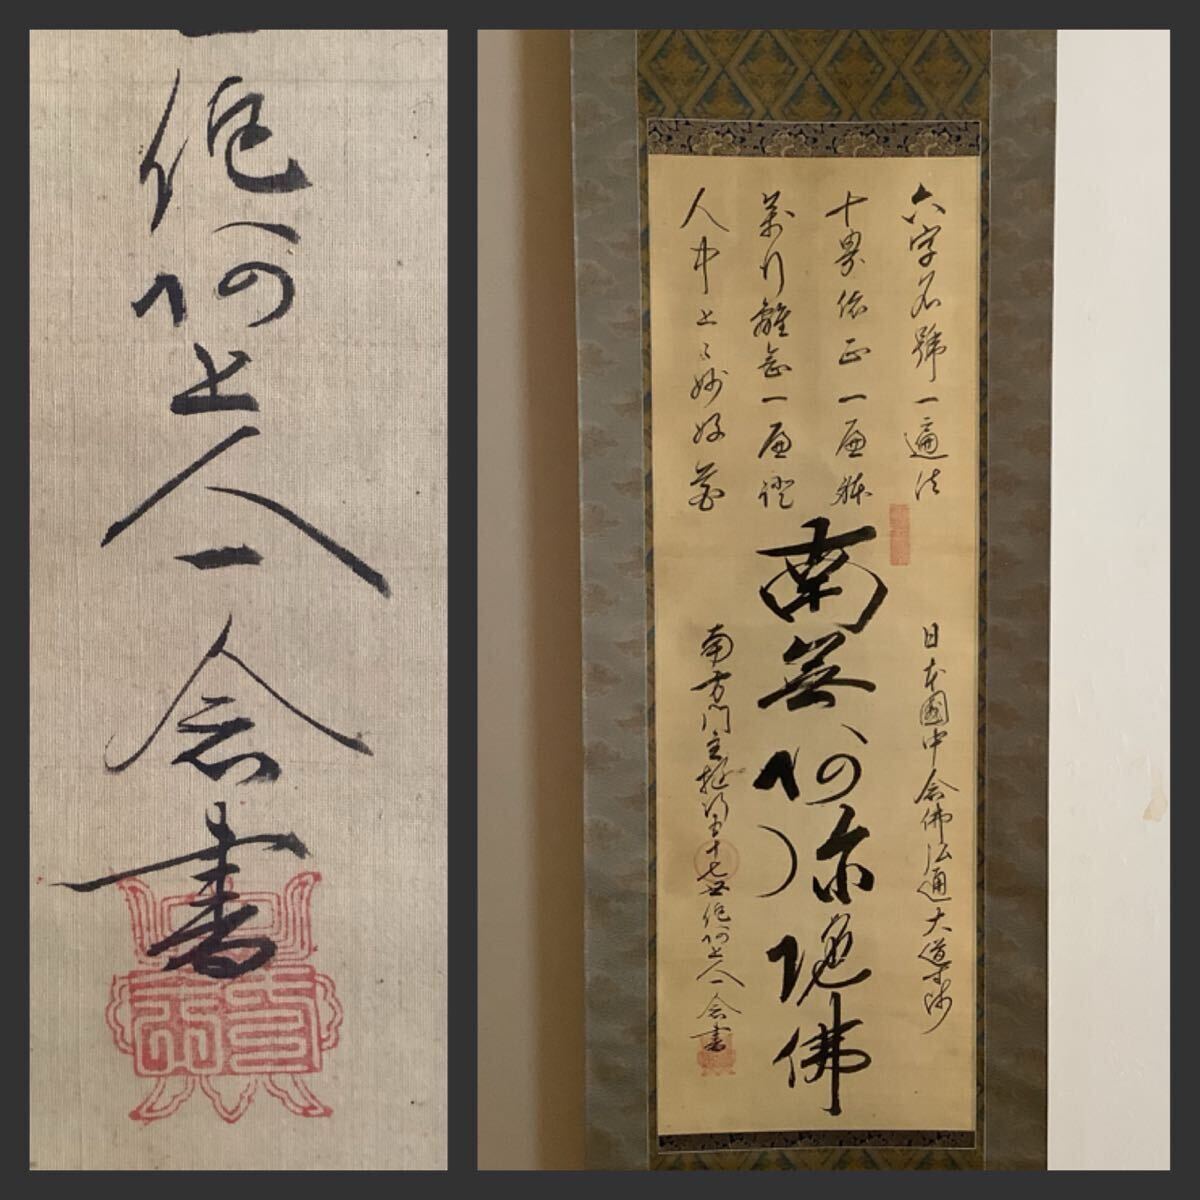 六字名號一遍法
十界依正一遍躰
萬行離念一遍證
人中上々妙好華
南無阿弥陀佛
日本國中念佛弘通大導師
南方門主遊行五十七世他阿上人一念書
他阿上人一念書